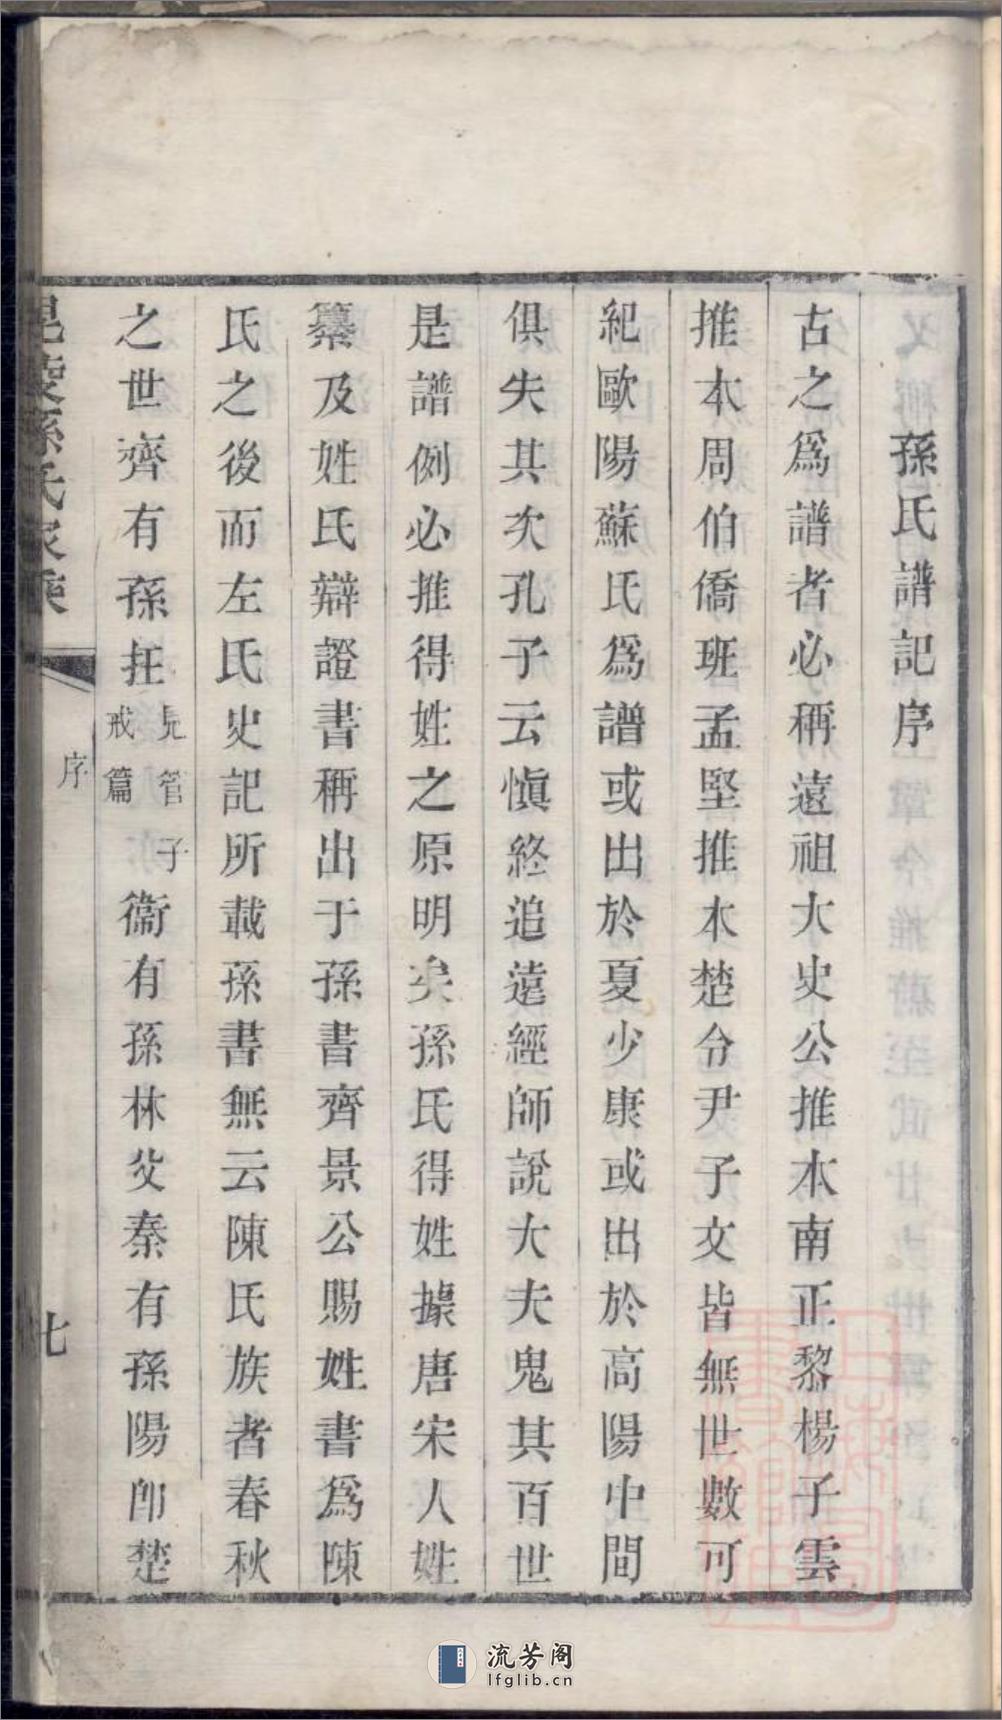 孫氏譜記序
古之爲譜者必稱遠祖大史公推本南正黎楊子雲
推本周伯僑班孟堅推本楚令尹子文皆無世數可
紀歐陽蘇氏爲譜或出於夏少康或出於高陽中間
俱失其次孔子云慎終追遠經師說大夫鬼其百世
是譜例必推得姓之原明矣孫氏得姓據唐宋人姓
纂及姓氏辯證書稱出于孫書齊景公賜姓書爲陳
氏之後而左氏史記所載孫書無云陳氏族者春秋
之世齊有孫在見管子戒篇衞有孫林父秦有孫陽卽楚
毘陵孫氏家乘
序
七
流芳阁
lfglib.cn